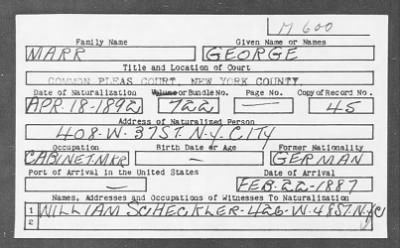 M 600
Family Name Given Name or Names
MARR GEORGE
Title and Location of Court
COMMON PLEAS COURT, NEW YORK COUNTY.
Date of Naturalization Volume or Bundle No. Page No. Copy of Record No.
APR-18-1892 722 — 45
Address of Naturalized Person
408-W-37ST-N.Y.CITY
Occupation Birth Date or Age Former Nationality
CABINETMKR — GERMAN
Port of Arrival in the United States Date of Arrival
— FEB-22-1887
Names, Addresses and Occupations of Witnesses To Naturalization
1 WILLIAM SCHECKLER-426-W-48ST.NYC
2